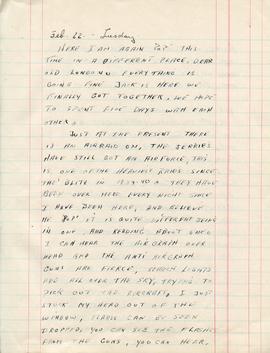 Feb. 22 - Tuesday
HERE I AM AGAIN "POP" THIS
TIME IN A DIFFERENT PLACE, DEAR
OLD LONDON. EVERYTHING IS
GOING FINE JACK IS HERE WE
FINALLY GOT TOGETHER, WE HOPE
TO SPENT FIVE DAYS WITH EACH
OTHER.
JUST AT THE PRESENT THERE
IS AN AIRRAID ON, THE JERRIES
HAVE STILL GOT AN AIR FORCE, THIS
IS ONE OF THE HEAVIEST RAIDS SINCE
THE BLITZ IN 1939-40. THEY HAVE
BEEN OVER HERE EVERY NIGHT SINCE
I HAVE BEEN HERE, AND BELIEVE
ME "POP" IT IS QUITE DIFFERENT BEING
IN ONE, AND READING ABOUT ONCE
I CAN HEAR THE AIRCRAFT OVER
HEAD AND THE ANTI AIRCRAFT
GUNS ARE FIERCE, SEARCH LIGHTS
ARE ALL OVER THE SKY, TRYING TO
PICK OUT THE AIRCRAFT, I JUST
STUCK MY HEAD OUT OF THE
WINDOW, FLARES CAN BE SEEN
DROPPED, YOU CAN SEE THE FLASHES
FROM THE GUNS, YOU CAN HEAR,